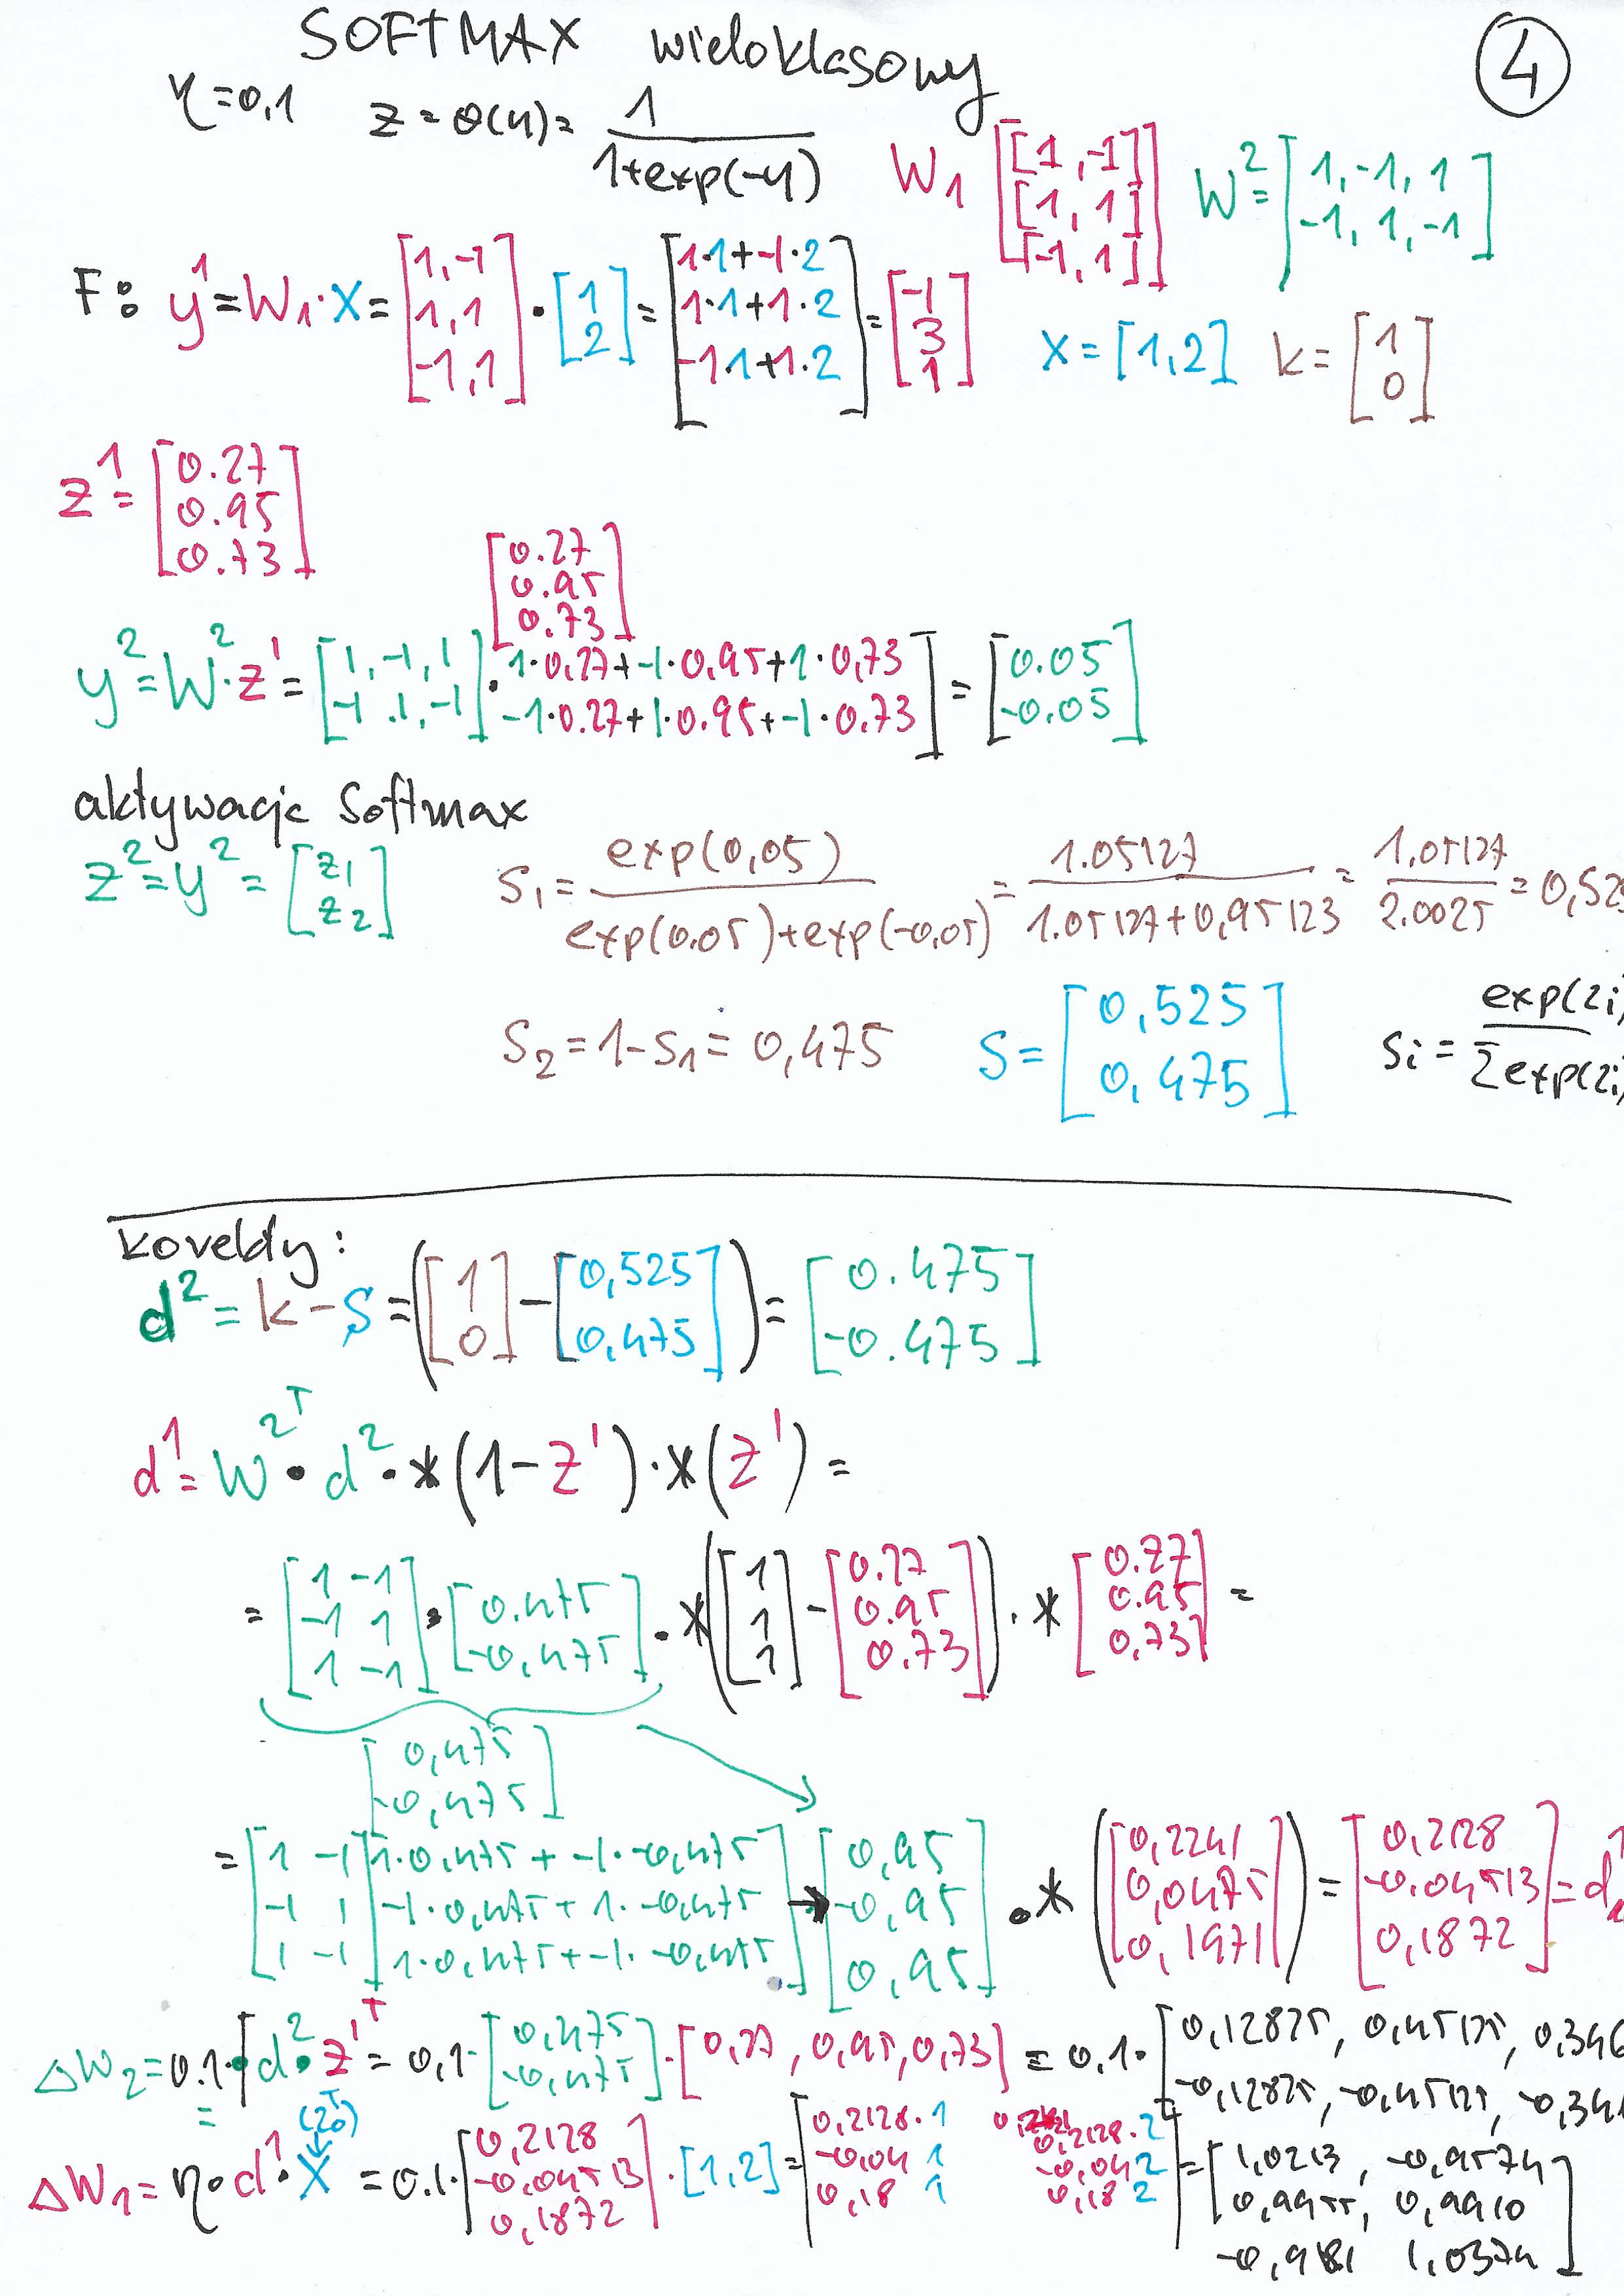 SOFTMAX wieloklasowy
4
η=0,1 z = θ(y) = 1 / 1+exp(-y)
W1 [[1,-1] [1,1] [-1,1]] W² = [1,-1,1 -1,1,-1]
F: y¹ = W1·X = [1,-1 1,1 -1,1] · [1 2] = [1·1+-1·2 1·1+1·2 -1·1+1·2] = [-1 3 1] X = [1,2] k = [1 0]
z¹ = [0.27 0.95 0.73]
[0.27 0.95 0.73]
y² = W²·z¹ = [1,-1,1 -1,1,-1] · 1·0,27+-1·0,95+1·0,73 -1·0.27+1·0.95+-1·0.73] = [0.05 -0.05]
aktywacje Softmax
z² = y² = [z1 z2] S1 = exp(0,05) / exp(0.05)+exp(-0,05) = 1.05127 / 1.05127+0,95123 = 1,05127 / 2.0025 = 0,525
S2 = 1-S1 = 0,475 S = [0,525 0,475] Si = exp(zi) / Σexp(zi)
d² = k - S = ([1 0] - [0,525 0,475]) = [0.475 -0.475]
d¹ = W²ᵀ · d² .* (1-z¹) .* (z¹) =
= [1 -1 -1 1 1 -1] · [0.475 -0,475] .* ([1 1 1] - [0.27 0.95 0.73]) .* [0.27 0.95 0,73] =
[0,475 -0,475]
= [1 -1 -1 1 1 -1] 1·0,475 + -1·-0,475 -1·0,475 + 1·-0,475 1·0,475 + -1·-0,475] → [0,95 -0,95 0,95] .* ([0,2241 0,0475 0,1971]) = [0,2128 -0.04513 0,1872] = d1
ΔW2 = 0.1 · d² · z¹ᵀ = 0,1 · [0,475 -0,475] · [0,27, 0,95, 0,73] = 0,1 · [0,12825, 0,45125, 0,346 -0,12825, -0,45125, -0,34
(z0)ᵀ
ΔW1 = η · d¹ · X = 0.1 · [0,2128 -0,04513 0,1872] · [1,2] = [0,2128·1 -0,04 1 0,18 1 0,2128·2 -0,04 2 0,18 2] = [1,0213, -0,9574 0,9955, 0,9910 -0,981 1,0374]